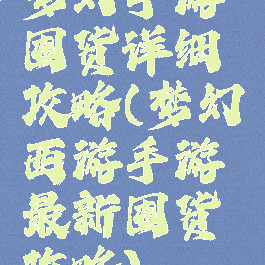 梦幻手游
国货详细
攻略(梦幻
西游手游
最新国货
攻略)